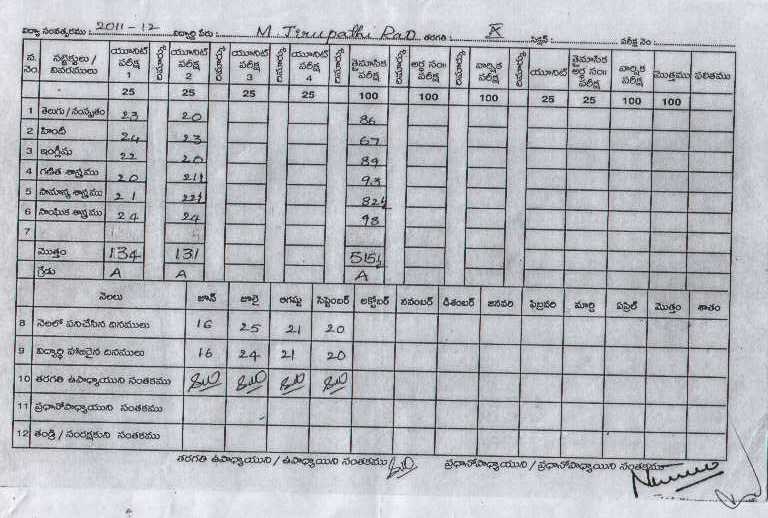 విద్యా సంవత్సరము : 2011-12 విద్యార్థి పేరు : M. Tirupathi Rao తరగతి : X సెక్షన్ : పరీక్ష నెం :
న. నెం. సబ్జెక్టులు / వివరములు యూనిట్ పరీక్ష 1 యూనిట్ పరీక్ష 2 యూనిట్ పరీక్ష 3 యూనిట్ పరీక్ష 4 త్రైమాసిక పరీక్ష అర్ధ సం॥ పరీక్ష వార్షిక పరీక్ష యూనిట్ త్రైమాసిక అర్ధ సం॥ పరీక్ష వార్షిక పరీక్ష మొత్తము ఫలితము
25 25 25 25 100 100 100 25 25 100 100
1 తెలుగు / సంస్కృతం 23 20 86
2 హిందీ 24 23 67
3 ఇంగ్లీషు 22 20 89
4 గణిత శాస్త్రము 20 21½ 93
5 సామాన్య శాస్త్రము 21 22½ 82½
6 సాంఘిక శాస్త్రము 24 24 98
7
మొత్తం 134 131 515½
గ్రేడు A A A
నెలలు జూన్ జూలై ఆగష్టు సెప్టెంబర్ అక్టోబర్ నవంబర్ డిశంబర్ జనవరి ఫిబ్రవరి మార్చి ఏప్రిల్ మొత్తం శాతం
8 నెలలో పనిచేసిన దినములు 16 25 21 20
9 విద్యార్థి హాజరైన దినములు 16 24 21 20
10 తరగతి ఉపాధ్యాయుని సంతకము
11 ప్రధానోపాధ్యాయుని సంతకము
12 తండ్రి / సంరక్షకుని సంతకము
తరగతి ఉపాధ్యాయుని / ఉపాధ్యాయిని సంతకము ప్రధానోపాధ్యాయుని / ప్రధానోపాధ్యాయిని సంతకము